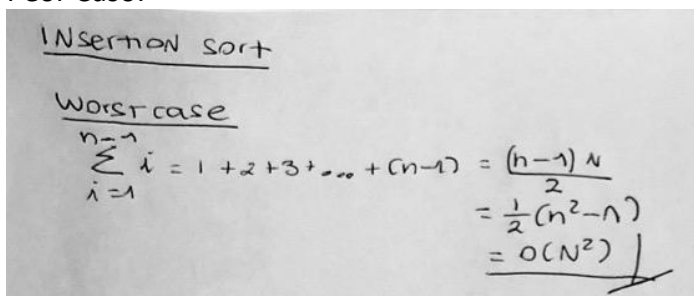 INSertion sort
Worst case
n-1
Σ i = 1 + 2 + 3 + ... + (n-1) = (n-1) N / 2
i=1
= 1/2 (n² - n)
= O(N²)